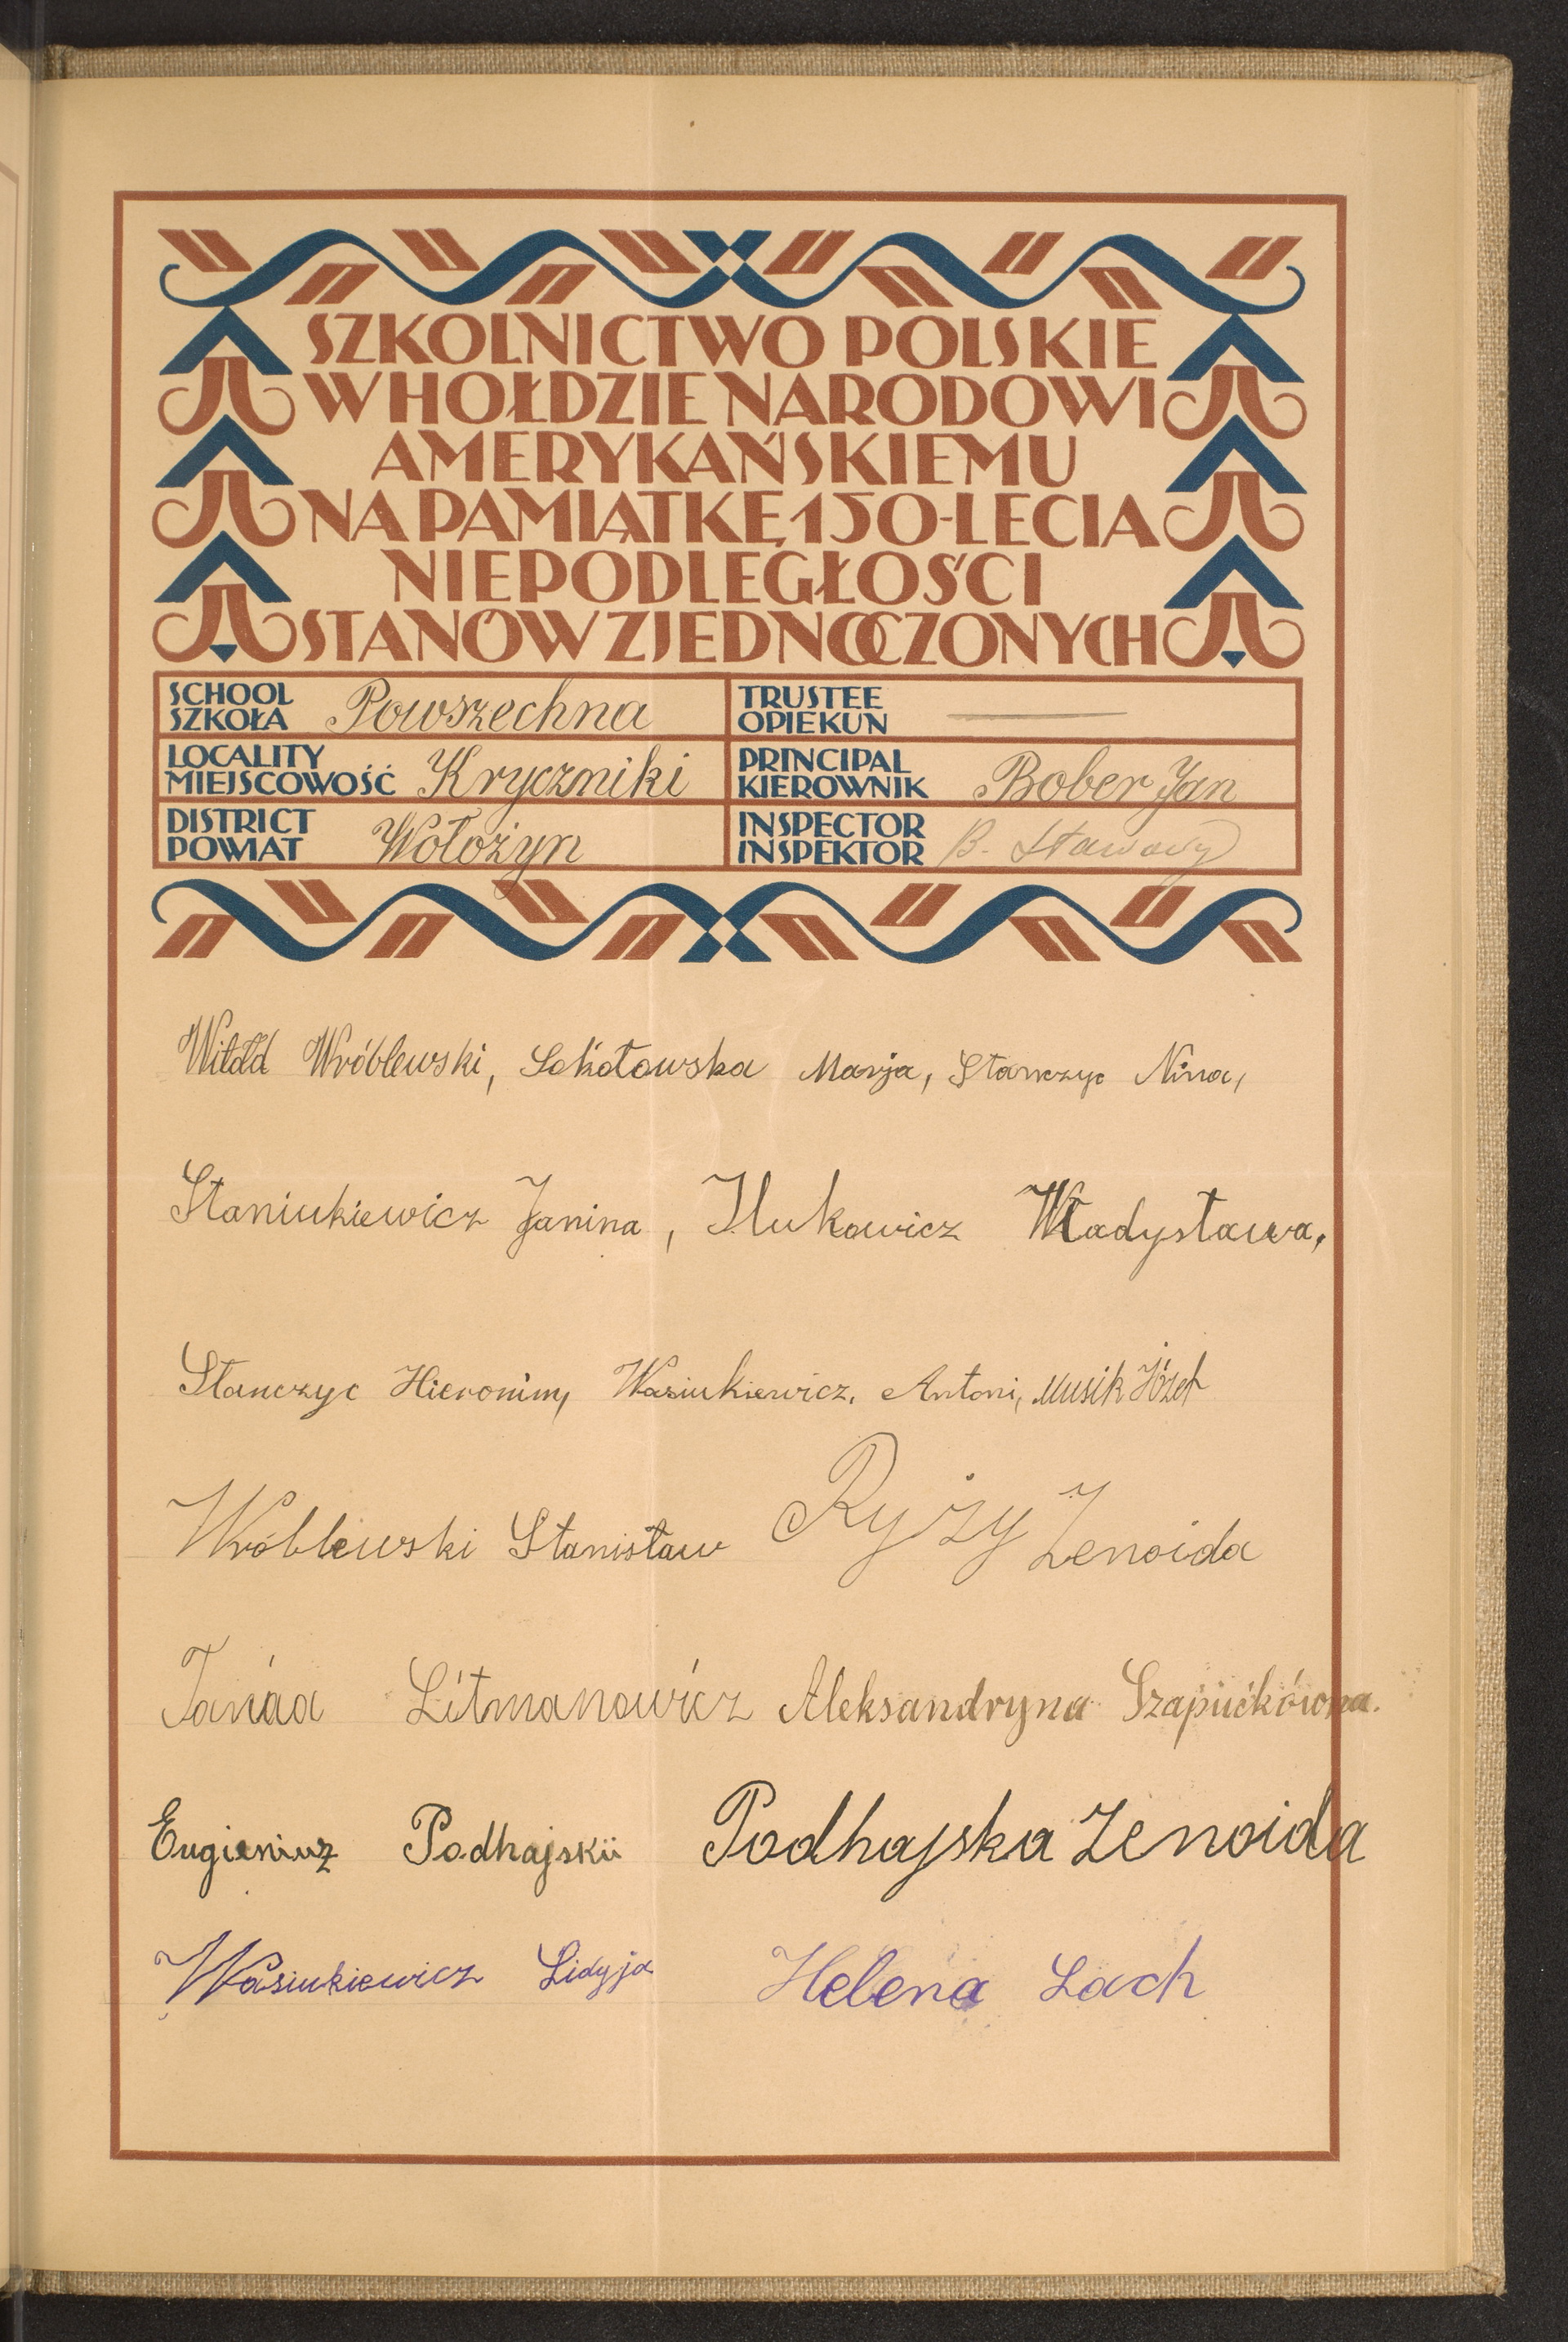 SZKOLNICTWO POLSKIE
W HOŁDZIE NARODOWI
AMERYKAŃSKIEMU
NA PAMIĄTKĘ 150-LECIA
NIEPODLEGŁOŚCI
STANÓW ZJEDNOCZONYCH
SCHOOL
SZKOŁA Powszechna
TRUSTEE
OPIEKUN
LOCALITY
MIEJSCOWOŚĆ Kryczniki
PRINCIPAL
KIEROWNIK Bober Jan
DISTRICT
POWIAT Wołożyn
INSPECTOR
INSPEKTOR B.
Witold Wróblewski, Sokołowska Marja, Stanczyc Nina,
Staniukiewicz Janina, Ilukowicz Władysława,
Stanczyc Hieronim, Wasiukiewicz, Antoni, Musik Józef
Wróblewski Stanisław Ryży Zenoida
Litmanowicz Aleksandryna Szapućkówna.
Eugieniusz Podhajskii Podhajska Zenoida
Wasiukiewicz Lidyja Helena Lach